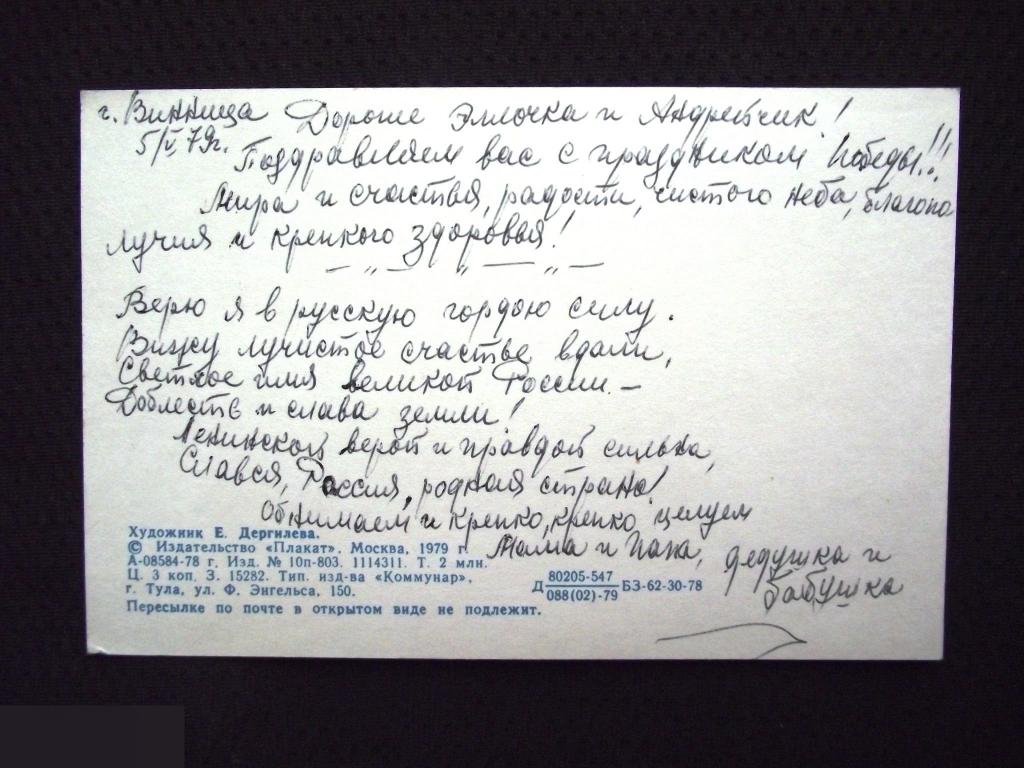 г. Винница Дорогие Эллочка и Андрейчик!
5/V 79г.
Поздравляем вас с праздником Победы!!!
Мира и счастья, радости, чистого неба, благопо
лучия и крепкого здоровья!
— „ — „ — „ —
Верю я в русскую гордою силу.
Вижу лучистое счастье вдали,
Светлое имя великой России —
Доблесть и слава земли!
Ленинской верой и правдой сильна,
Славься, Россия, родная страна!
Обнимаем и крепко, крепко целуем
Мама и Папа, дедушка и
бабушка
Художник Е. Дергилева.
© Издательство «Плакат». Москва, 1979 г.
А-08584-78 г. Изд. № 10п-803. 1114311. Т. 2 млн.
Ц. 3 коп. З. 15282. Тип. изд-ва «Коммунар»,
г. Тула, ул. Ф. Энгельса, 150.
Д 80205-547 БЗ-62-30-78
088(02)-79
Пересылке по почте в открытом виде не подлежит.